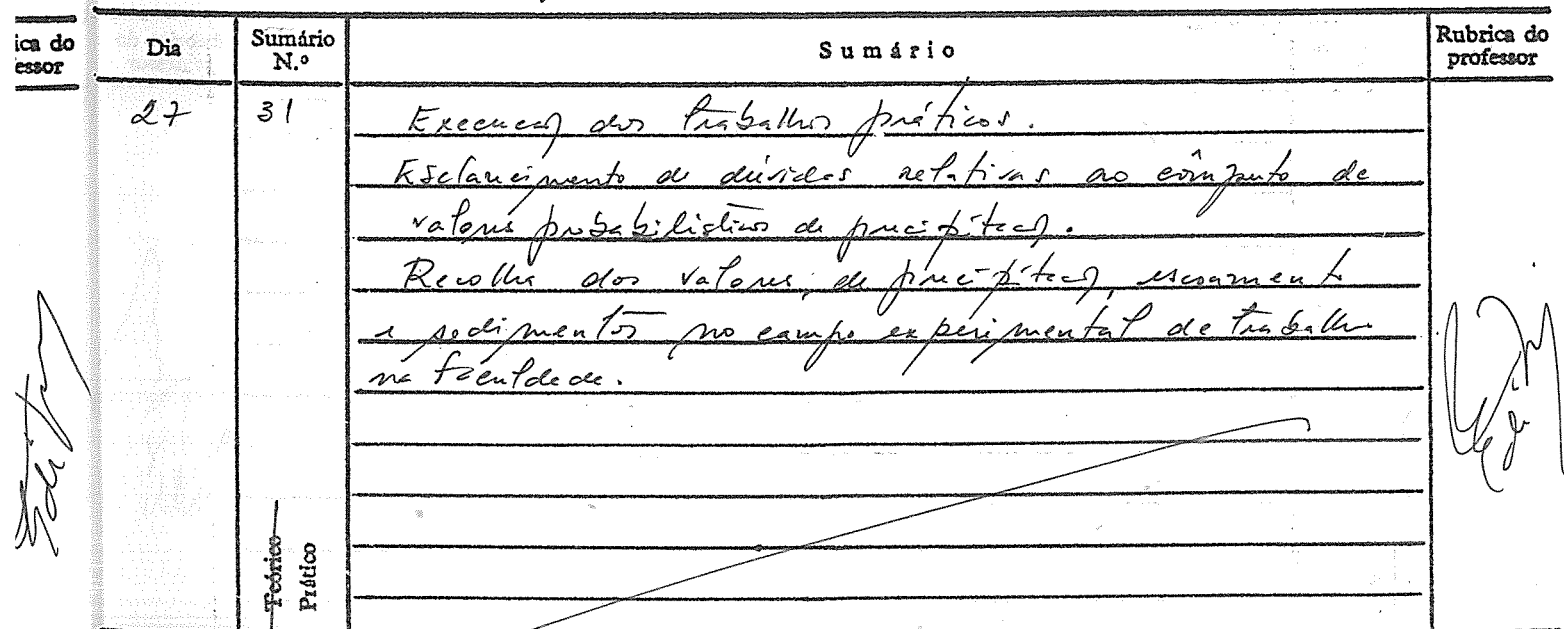 ica do
essor
Dia
Sumário
N.º
Sumário
Rubrica do
professor
27
31
Execução dos trabalhos práticos.
Esclarecimento de dúvidas relativas ao cômputo de
valores probabilísticos de precipitação.
Recolha dos valores, de precipitação, escoamento
e sedimentos no campo experimental de trabalho
na Faculdade.
Teórico
Prático